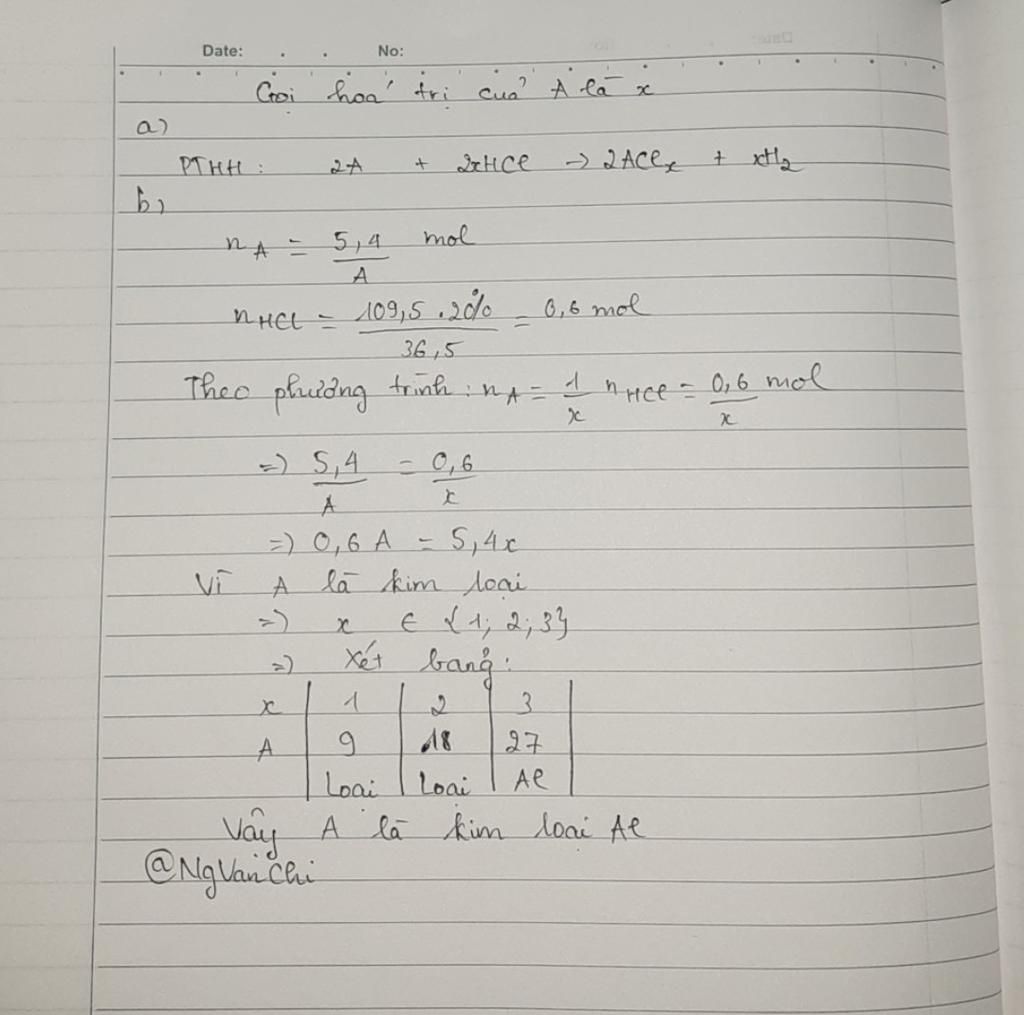 Date: . . No:
Gọi hoá trị của A là x
a)
PTHH : 2A + 2xHCl → 2AClₓ + xH₂
b)
n_A = 5,4/A mol
n_HCl = 109,5 . 20%/36,5 = 0,6 mol
Theo phương trình : n_A = 1/x n_HCl = 0,6/x mol
=) 5,4/A = 0,6/x
=) 0,6 A = 5,4x
Vì A là kim loại
=) x ∈ {1; 2; 3}
=) Xét bảng :
x | 1 | 2 | 3 |
A | 9 | 18 | 27 |
| Loại | Loại | Al |
Vậy A là kim loại Al
@NgVanChi